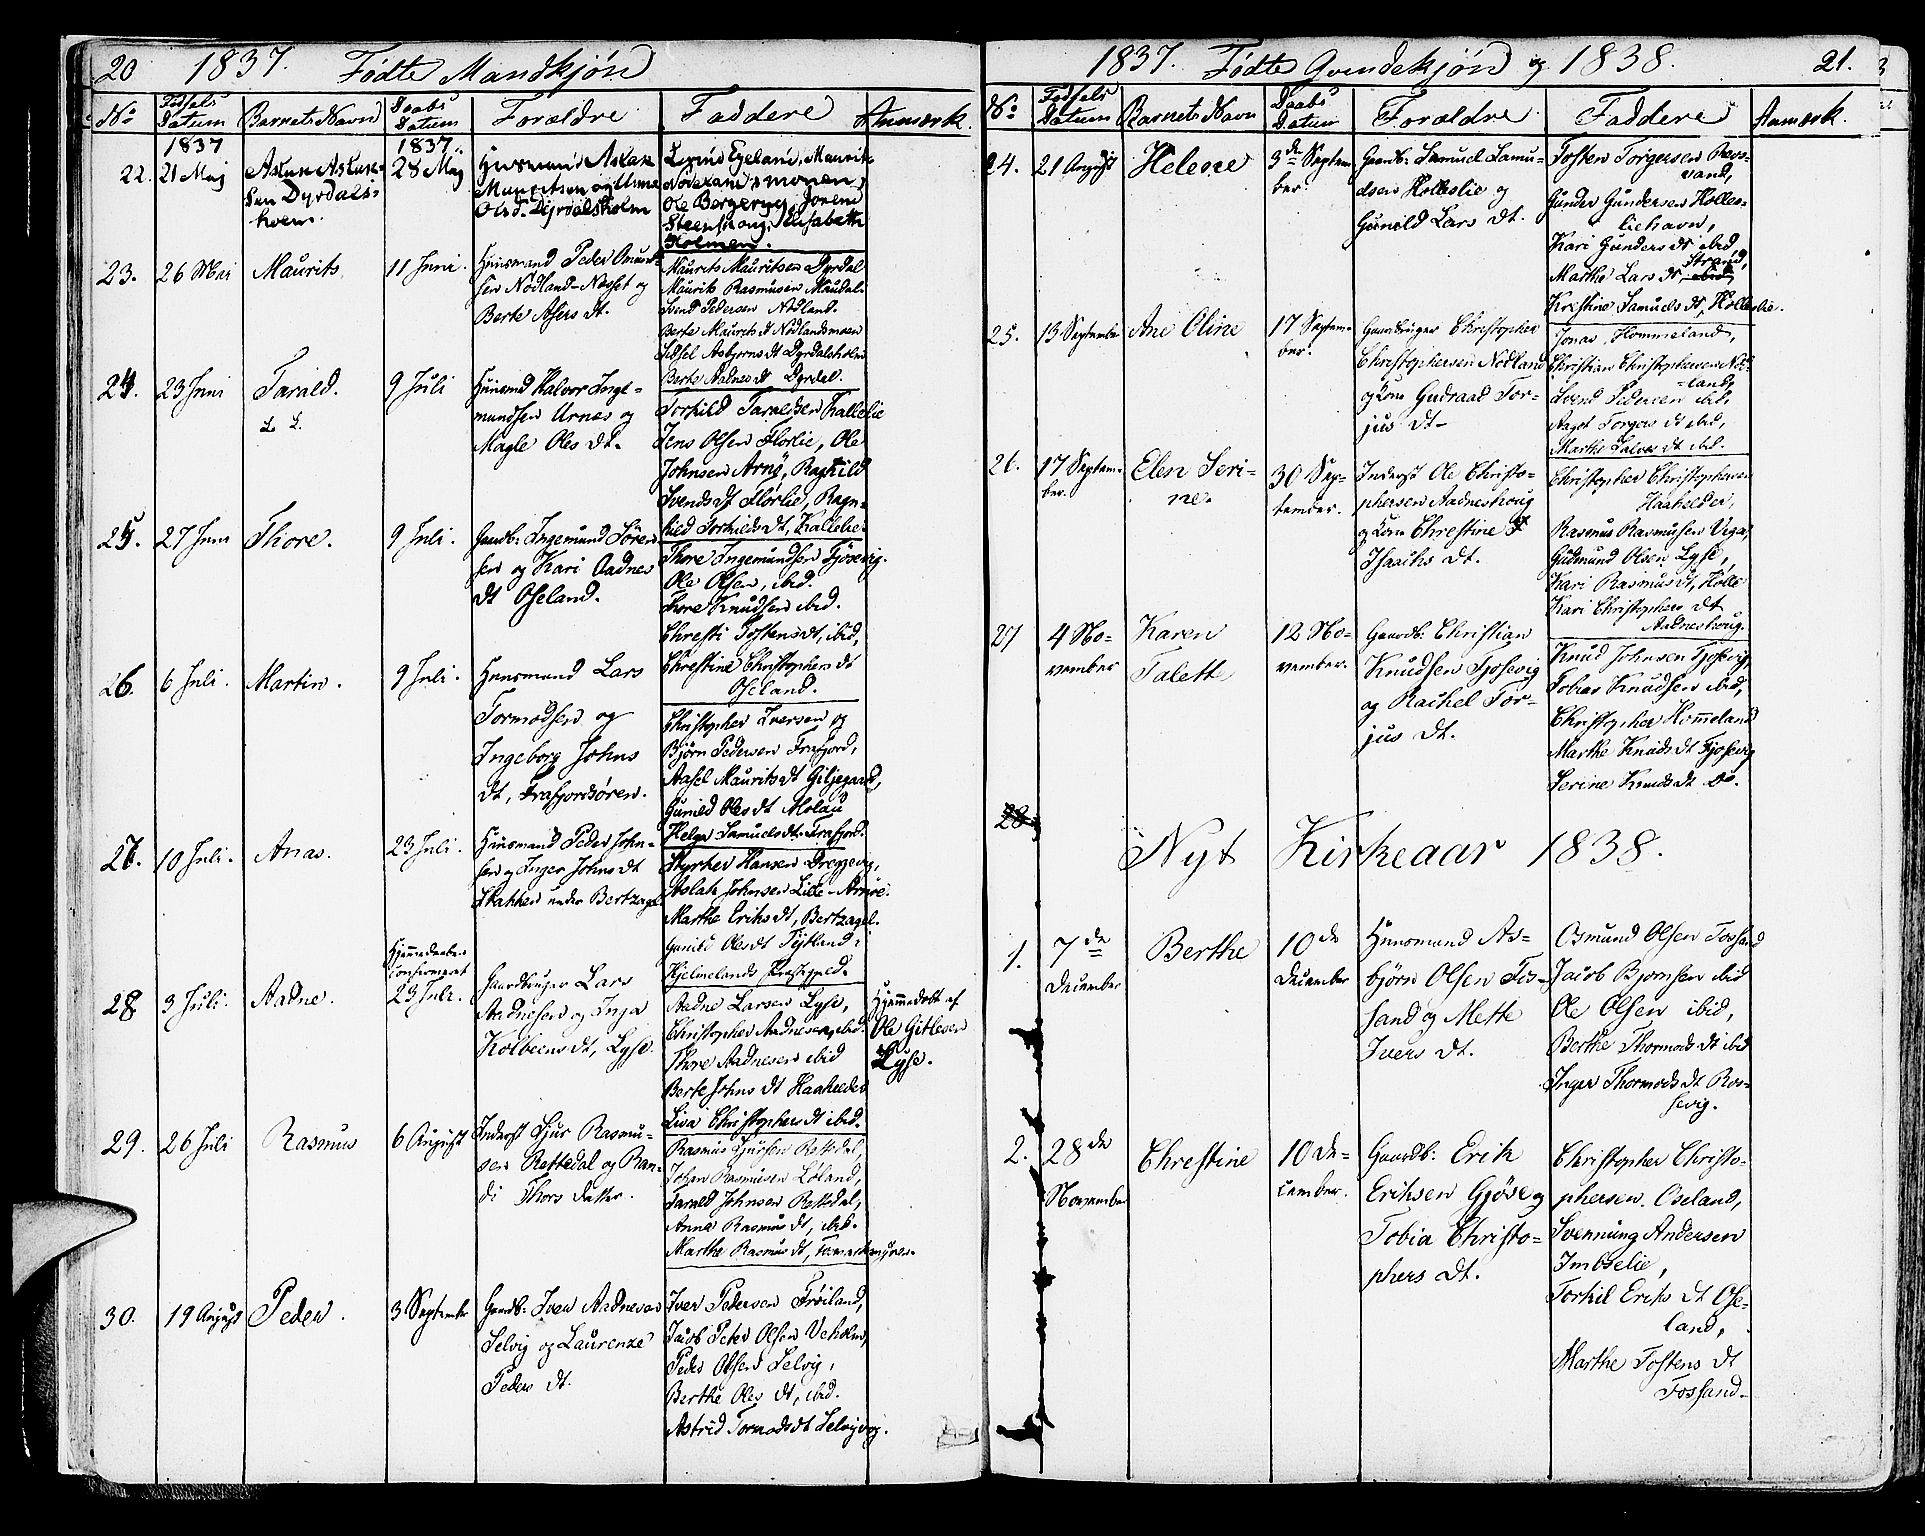 20 1837. Födte Mandkjön
No Födsels Datum Barnets Navn Daabs Datum Forældre Faddere Anmærk.
1837 1837.
22. 21 Maj Aslak Aslak-
sen Dyrdals-
holm.
28 Maj
Huusmand Aslak
Mauritsen og Anna
Olsd. Dyrdalsholm
Svend Egeland, Maurits
Ole Bergeryg, Jorem
Steenskaug, Elisabeth
Holmen.
23. 26 Mai Maurits. 11 Juni.
Huusmand Peder Omund-
sen Nödland-Næset og
Berte Asers dt.
Maurits Mauritsen Dyrdal
Maurits Rasmusen Maudal
Svend Pedersen Nödland.
Berte Maurits dt Nödlandsmoen
Sidsel Asbjorns dt Dyrdalsholm
Berte Aadnes dt Dyrdal.
24. 23 Juni Tarald. 9 Juli
Huusmd Halvor Inge-
mundsen Arnæs og
Magle Oles dt.
Torkild Taraldsen Kallelie
Jens Olsen Florlie, Ole
Johnsen Arnö, Ragnild
Svends dt Flörlie, Ragn-
hild Torkilds dt, Kallelie.
25. 27 Juni Thore. 9 Juli.
Gaardb: Ingemund Sören
sen og Kari Aadnes
dt Oseland.
Thore Ingemundsen Fjösevig.
Ole Olsen, ibid.
Thore Knudsen ibid.
Christi Tostens dt, ibid,
Christine Christophers dt
Oseland.
26. 6 Juli. Martin. 9 Juli.
Huusmand Lars
Tormodsen og
Ingeborg Johns
dt, Frafjordsören.
Christopher Iversen og
Björn Pedersen Frafjord,
Aasel Maurits dt Giljegaard,
Gunild Oles dt Molau
Helga Samuels dt Frafjord.
27. 10 Juli. Anas. 23 Juli.
Huusmand Peder John-
sen og Inger Johns dt
Skakken under Bertzagel
Styrker Hansen Dreggevig,
Aslak Johnsen Lille-Arnöe.
Marthe Eriks dt, Bertzagel.
Gunild Oles dt Tytland i
Hjelmelands Præstegjeld.
28. 3 Juli. Aadne.
Hjemmedaaben
confirmeret
23 Juli.
Gaardbruger Lars
Aadnesen og Inja
Kolbeens dt, Lyse.
Aadne Larsen Lyse,
Christopher Aadnesen, ibid.
Thore Aadnesen ibid
Berte Johns dt Haaheller
Liva Christophers dt ibid.
Hjemmedöbt af
Ole Gitlesen
Lyse.
29. 26 Juli Rasmus 6 August
Inderst Sjur Rasmu-
sen Rettedal og Ran-
di Thors datter.
Rasmus Sjursen Rettedal,
Johan Rasmusen Löland,
Tarald Johnsen Rettedal,
Anna Rasmus dt, ibid.
Marthe Rasmus dt, Fomarkmyren.
30. 19 August Peder. 3 September
Gaardb: Iver Aadnesen
Selvig og Laurenze
Peders dt.
Iver Pedersen Fröiland,
Jacob Peter Olsen Veholm,
Peder Olsen Selvig,
Berthe Oles dt, ibid.
Astrid Tormods dt Selvigvog.
1837. Födte Qvindekjön og 1838. 21.
No Födsels Datum Barnets Navn Daabs Datum Forældre Faddere Anmærk.
24. 21 August Helene 3de Septem-
ber.
Gaardb: Samuel Samu-
elsen Holleslie og
Gunild Lars dt.
Tosten Torgersen Res-
vand,
Gunder Gundersen Holles-
liehavn,
Kari Gunders dt ibid,
Marthe Lars dt Strand,
Kristine Samuels dt, Holleslie.
25. 13 September Ane Oline 17 Septem-
ber.
Gaardbruger Christopher
Christophersen Nödland
og Kone Gudraad Tor-
jus dt.
Jonas Hommeland,
Christian Christophersen Nöd-
land,
Svend Pedersen ibid,
Aagot Torgers dt ibid,
Marthe Salves dt ibid.
26. 17 Septem-
ber.
Elen Seri-
ne.
30 Sep-
tember.
Inderst Ole Christo-
phersen Aadneskoug
og Kone Christine
Isaachs dt.
Christopher Christophersen
Haaheller,
Rasmus Rasmusen Vega,
Gudmund Olsen Lyse,
Kari Rasmus dt, Holle
Kari Christophers dt
Aadneshoug.
27 4 No-
vember
Karen
Talette
12 No-
vember.
Gaardb: Christian
Knudsen Fjosevig
og Rachel Tor-
jus dt.
Knud Johnsen Fjosevig,
Tobias Knudsen ibid,
Christopher Hommeland
Marthe Knuds dt Fjosevig
Serine Knuds dt do.
28.
Nyt Kirkeaar 1838.
1. 7de
December
Berthe
10de
December
Huusmand As-
björn Olsen Fos-
sand og Mette
Ivers dt.
Osmund Olsen Fossand
Jacob Bjornsen ibid
Ole Olsen ibid,
Berthe Thormods dt ibid
Inger Thormods dt Ros-
sevig.
2. 28de
November
Christine
10 De-
cember.
Gaardb: Erik
Eriksen Gjöse og
Tobia Christo-
phers dt.
Christopher Christo-
phersen Oseland,
Svennung Andersen
Imbselie,
Torkil Eriks dt Ose-
land,
Marthe Tostens dt
Fossand.